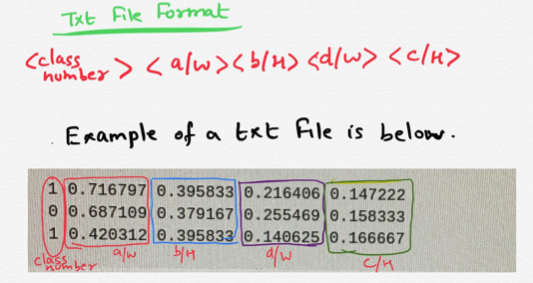 Txt File Format
<class number> <a/W> <b/H> <d/W> <c/H>
Example of a txt file is below.
1 0.716797 0.395833 0.216406 0.147222
0 0.687109 0.379167 0.255469 0.158333
1 0.420312 0.395833 0.140625 0.166667
class number a/W b/H d/W c/H